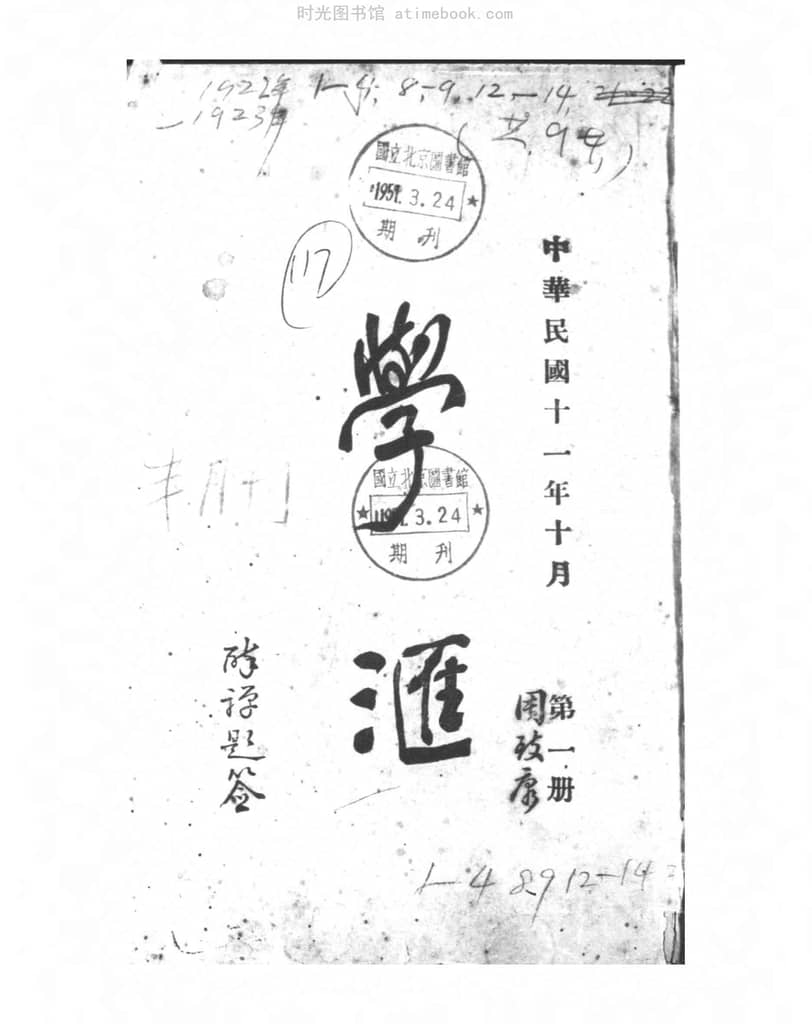 时光图书馆 atimebook.com
1922年 1-4, 8-9, 12-14, 21-22
-1923年
(共9本)
國立北京圖書館
1951.3.24
期刊
117
中華民國十一年十月
第一册
學滙
國立北京圖書館
1951.3.24
期刊
半月刊
題簽
1-4 8,9 12-14